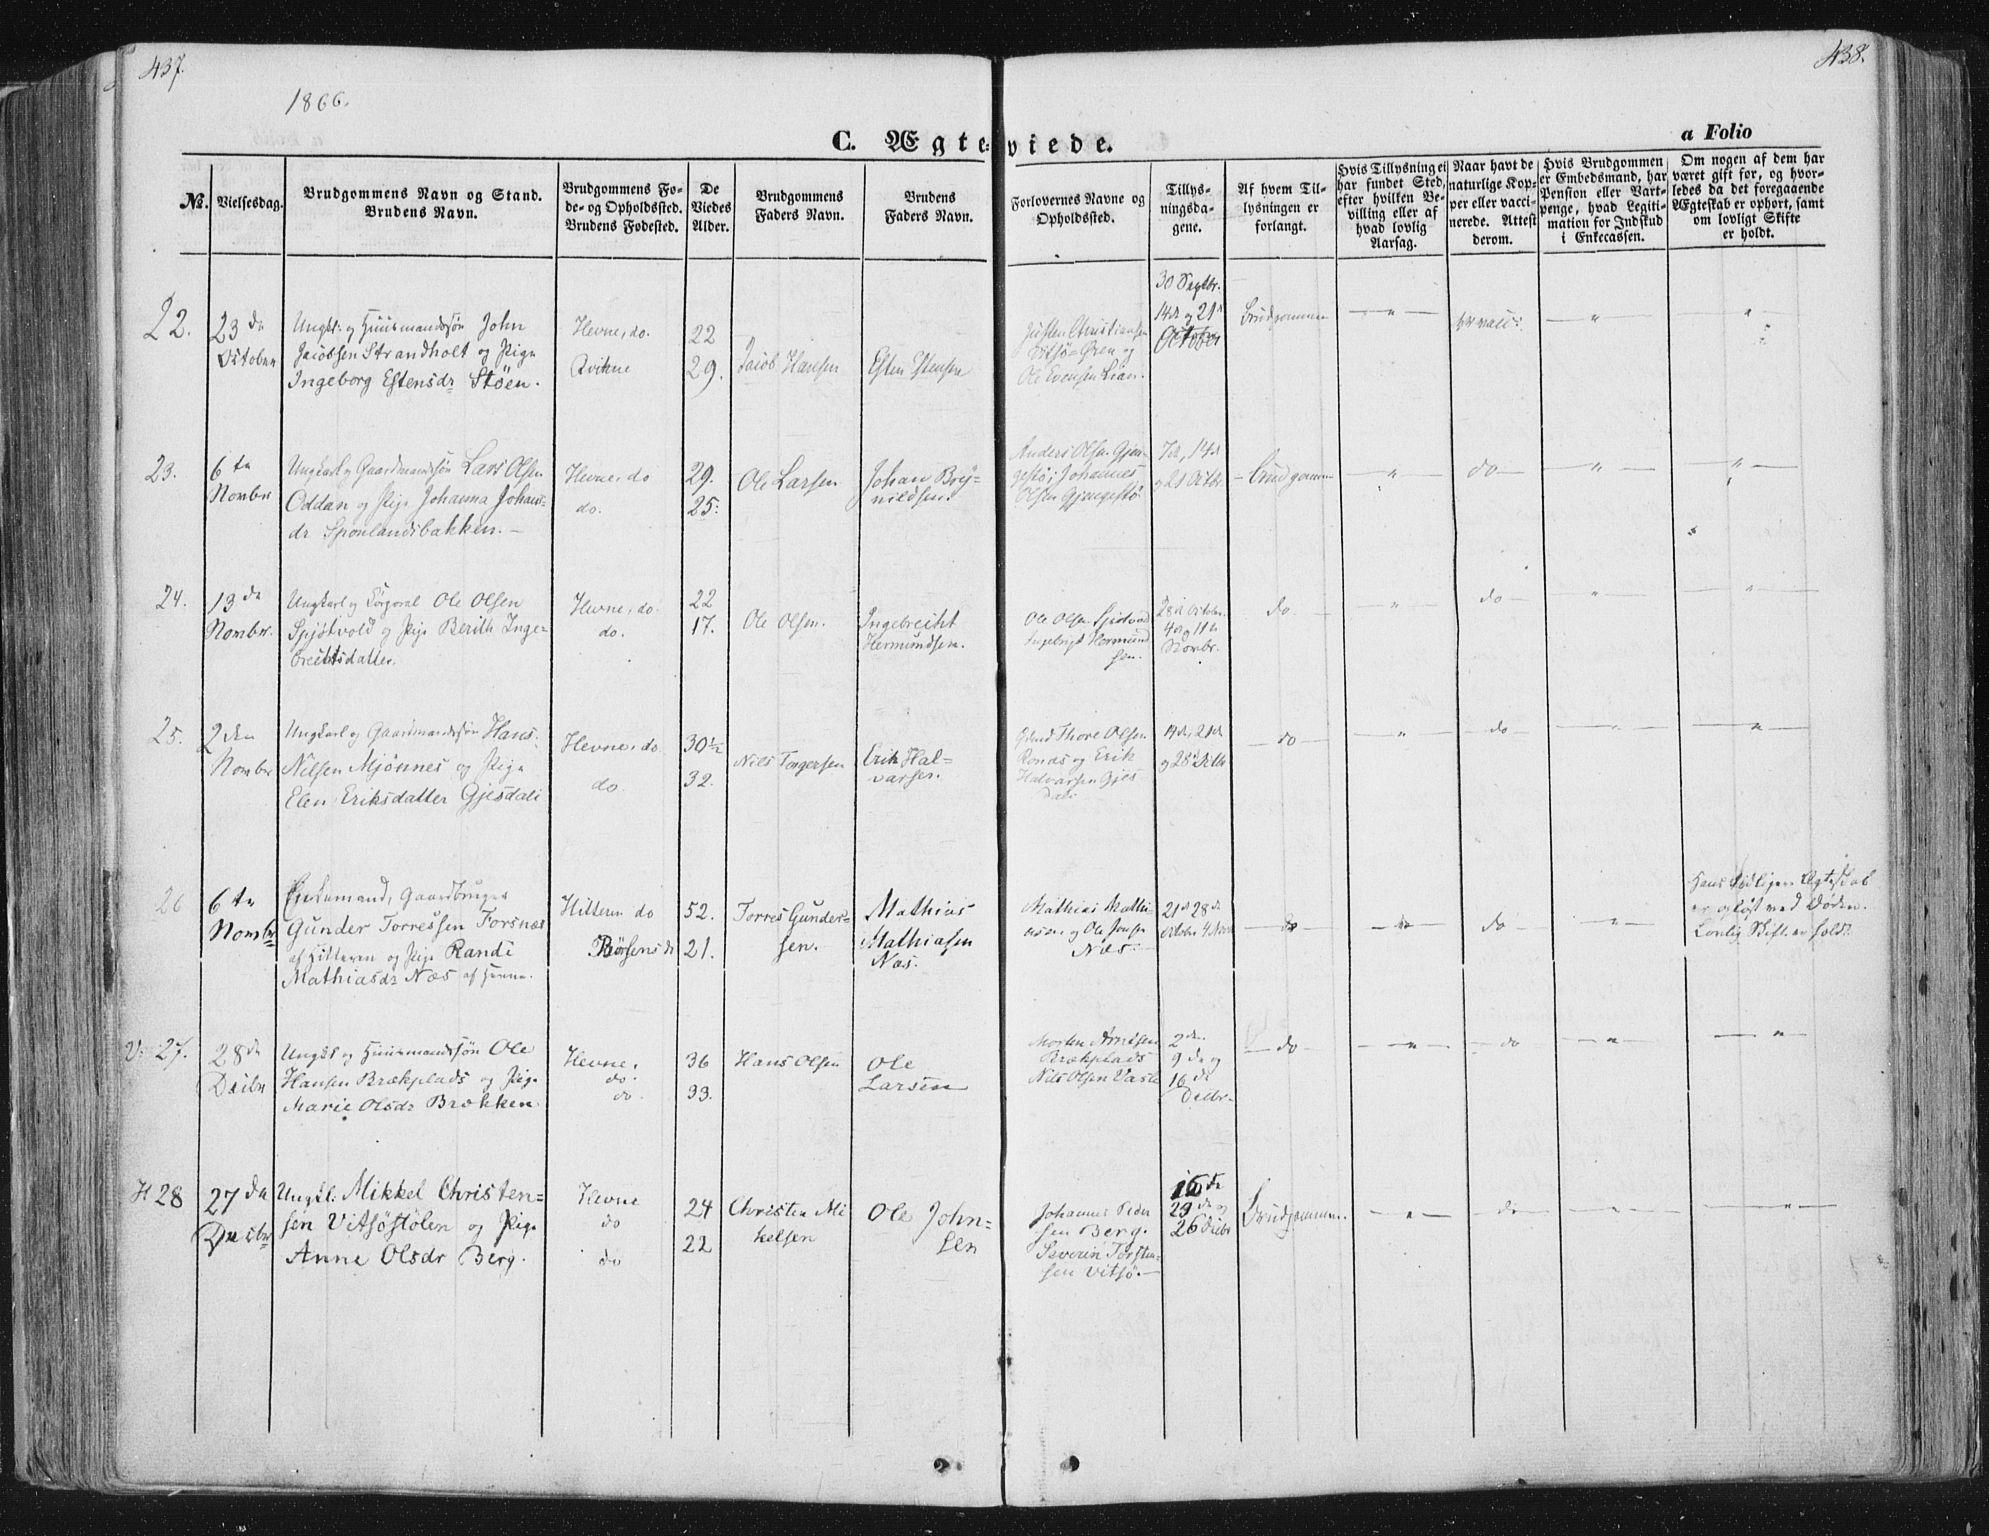 437.
438.
1866.
C. Ægteviede.
a Folio
No.
Vielsesdag.
Brudgommens Navn og Stand.
Brudens Navn.
Brudgommens Fø-
de- og Opholdssted.
Brudens Fødested.
De
Viedes
Alder.
Brudgommens
Faders Navn.
Brudens
Faders Navn.
Forlovernes Navne og
Opholdssted.
Tillys-
ningsda-
gene.
Af hvem Til-
lysningen er
forlangt.
Hvis Tillysning ei
har fundet Sted,
efter hvilken Be-
villing eller af
hvad lovlig
Aarsag.
Naar havt de
naturlige Kop-
per eller vacci-
nerede. Attest
derom.
Hvis Brudgommen
er Embedsmand, har
Pension eller Vart-
penge, hvad Legiti-
mation for Indskud
i Enkecassen.
Om nogen af dem har
været gift før, og hvor-
ledes da det foregaaende
Ægteskab er ophørt, samt
om lovligt Skifte
er holdt.
22.
23de
October
Ungk: og Huusmandssøn John
Jacobsen Strandholt og Pige
Ingeborg Estensdr Støen.
Hevne, do.
Qvikne
22
29.
Jacob Hansen
Esten Estensen
Justen Christiansen
Vitsø-Øren og
Ole Evensen Lian.
30 Septbr.
14de og 21de
October
Brudgommen
— " —
— " —
"
23.
6te
Novmbr
Ungkarl og Gaardmandssøn Lars Olsen
Oddan og Pige Johanna Johans-
dr Sponlandsbakken. —
Hevne, do
do.
29.
25:
Ole Larsen
Johan Bry-
nildsen.
Anders Olsen Gjen-
gestø, Johannes
Olsen Gjengestø
7de, 14de
og 21 Octbr
— Brudgommen
— " —
do
— " —
— " —
24.
13de
Novmbr.
Ungkarl og Corporal Ole Olsen
Spjøtvold og Pige Berith Inge-
brichtsdatter.
Hevne, do.
do.
22
17.
Ole Olsen.
Ingebricht
Hermundsen.
Ole Olsen Spjøtvold
Ingebrigt Hermund
sen.
28de October
4de og 11te
Novbr.
do —
— " —
do —
— " —
— " —
25.
2den
Novmbr
Ungkarl og Gaardmandssøn Hans
Nilsen Mjønnes og Pige
Elen Eriksdatter Gjesdali
Hevne, do
do
30½
32.
Nils Torgersen
Erik Hal-
varsen.
Thore Olsen
Ronds og Erik
Halvarsen Gjes
dali
14de, 21de
og 28de
— do
— " —
do —
— " —
— " —
26
6te
Novmbr
Enkemand, Gaardbruger
Gunder Torressen Forsnæs
af Hitteren og Pige Randi
Mathiasdr Næs af Hevne.
Hitteren do
Børsen
52.
21.
Torres Gunder-
sen.
Mathias
Mathiasen
Næs.
Mathias Mathi-
asen og Ole Jonsen
Næs —
21de 28de
October 4 Novbr
— do —
— " —
do —
— " —
Hans tidligere Ægteskab
er opløst ved Døden.
Lovlig Skifte er holdt.
V. 27.
28de
Decbr
Ungkl og Huusmandssøn Ole
Hansen Brækplads og Pige
Marie Olsdr Brækken.
Hevne.
do.
do.
36
33.
Hans Olsen
Ole
Larsen
Morten Arntsen
Brækplads
Nils Olsen Vasli
2den
9de og
16de
Decbr.
— do —
— " —
— do
— " —
— " —
H 28
27de
Decbr
Ungkl: Mikkel Christen-
sen Vitsøstølen og Pige
Anne Olsdr Berg.
Hevne
do
do
24
22
Christen Mi
kelsen
Ole John-
sen
Johannes Peder
sen Berg.
Severin Torsten-
sen Vitsø. —
16de
23de og
26 Decbr
Brudgommen.
— " —
do —
— " —
— " —